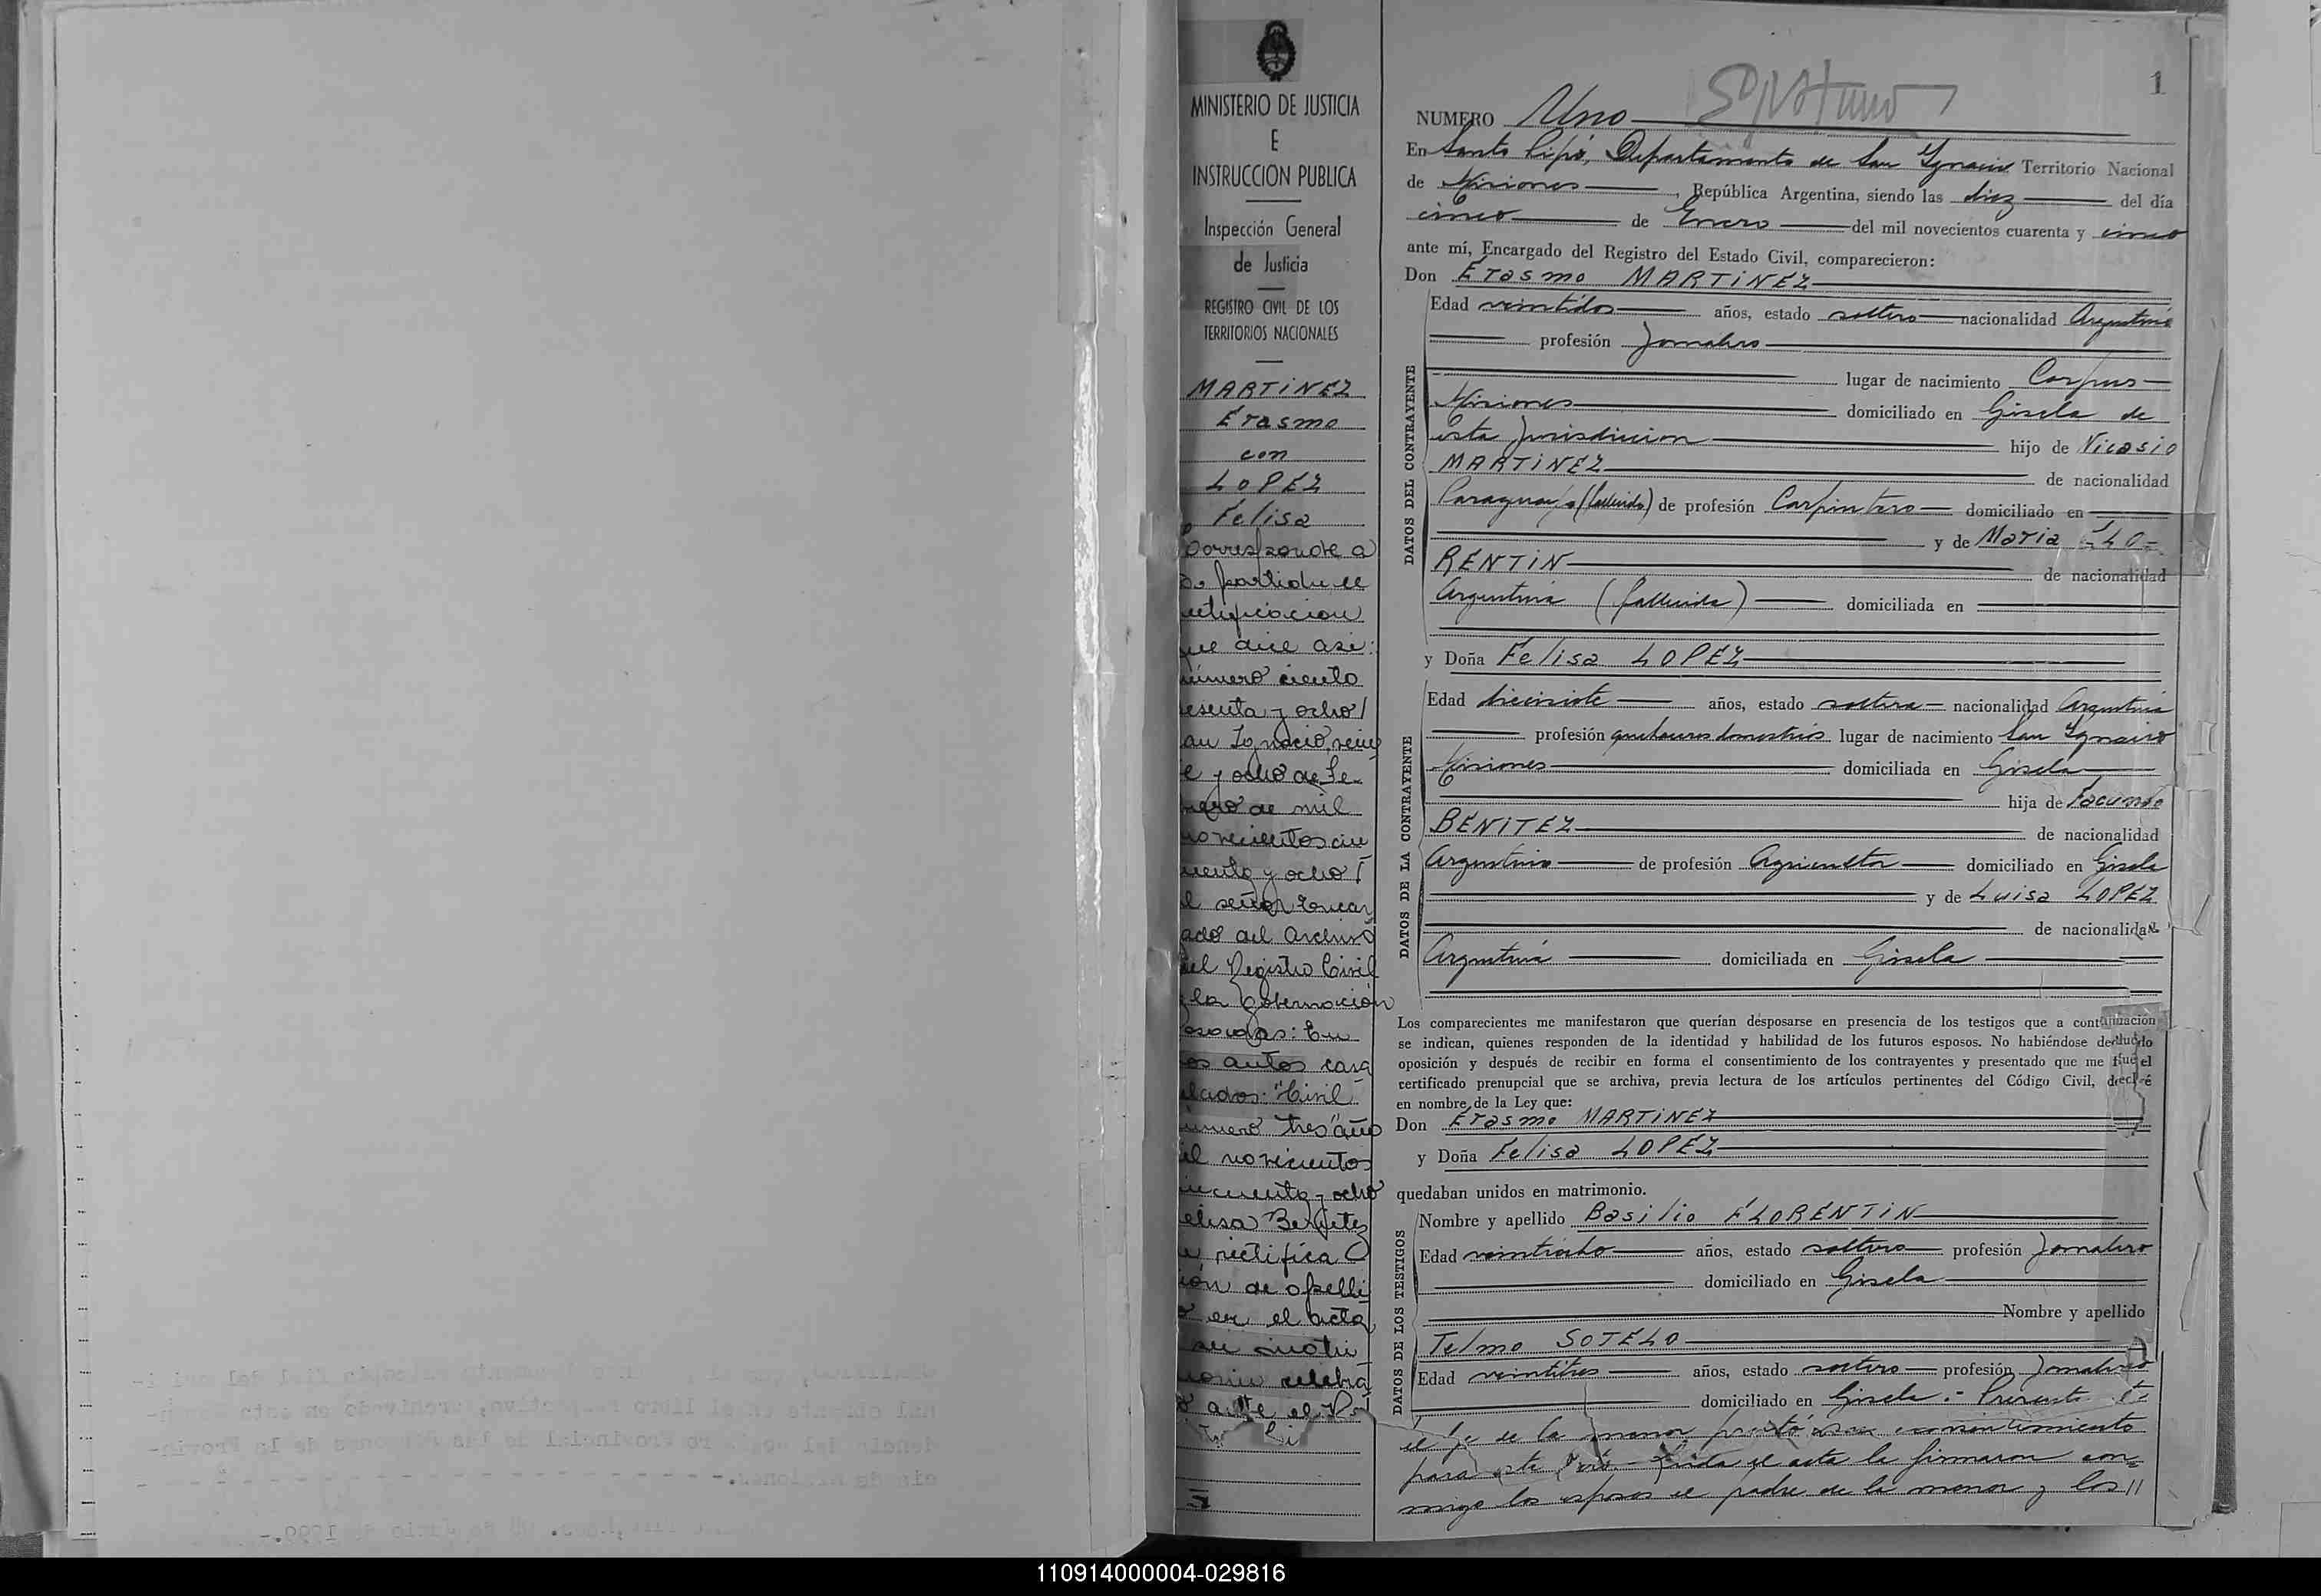 1
MINISTERIO DE JUSTICIA
E
INSTRUCCION PUBLICA
Inspección General
de Justicia
REGISTRO CIVIL DE LOS
TERRITORIOS NACIONALES
MARTINEZ
Erasmo
con
LOPEZ
Felisa
Corresponde a
partida de
que dice asi:
número ciento
sesenta y ocho
mil
y ocho
el señor Encar
gado del Archivo
del Registro Civil
la Gobernación
Posadas: En
los autos cara
tulados: "Civil
número tres" año
mil novecientos
cincuenta y ocho
Benitez
rectifica
ción de apelli
do en el acta
su matri
monio celebra
NUMERO Uno
En Santo Pipó, Departamento de San Ygnacio Territorio Nacional
de Misiones, República Argentina, siendo las diez del día
cinco de Enero del mil novecientos cuarenta y cinco
ante mí, Encargado del Registro del Estado Civil, comparecieron:
Don Erasmo MARTINEZ
DATOS DEL CONTRAYENTE
Edad veintidos años, estado soltero nacionalidad Argentino
profesión Jornalero
lugar de nacimiento Corpus
Misiones domiciliado en Gisela de
esta Jurisdiccion hijo de Nicasio
MARTINEZ de nacionalidad
Paraguayo (fallecido) de profesión Carpintero domiciliado en
y de Maria FLO=
RENTIN de nacionalidad
Argentina (fallecida) domiciliada en
y Doña Felisa LOPEZ
DATOS DE LA CONTRAYENTE
Edad diecisiete años, estado soltera nacionalidad Argentina
profesión quehaceres domesticos lugar de nacimiento San Ygnacio
Misiones domiciliada en Gisela
hija de Facundo
BENITEZ de nacionalidad
Argentino de profesión Agricultor domiciliado en Gisela
y de Luisa LOPEZ
de nacionalidad
Argentina domiciliada en Gisela
Los comparecientes me manifestaron que querían desposarse en presencia de los testigos que a continuación
se indican, quienes responden de la identidad y habilidad de los futuros esposos. No habiéndose deducido
oposición y después de recibir en forma el consentimiento de los contrayentes y presentado que me fue el
certificado prenupcial que se archiva, previa lectura de los artículos pertinentes del Código Civil, declaré
en nombre de la Ley que:
Don Erasmo MARTINEZ
y Doña Felisa LOPEZ
quedaban unidos en matrimonio.
DATOS DE LOS TESTIGOS
Nombre y apellido Basilio FLORENTIN
Edad veintiocho años, estado soltero profesión Jornalero
domiciliado en Gisela
Nombre y apellido
Telmo SOTELO
Edad veintitres años, estado soltero profesión Jornalero
domiciliado en Gisela.- Presente
de la menor prestó su consentimiento
para este Leida el acta la firmaron con=
migo los esposos el padre de la menor y los //
110914000004-029816